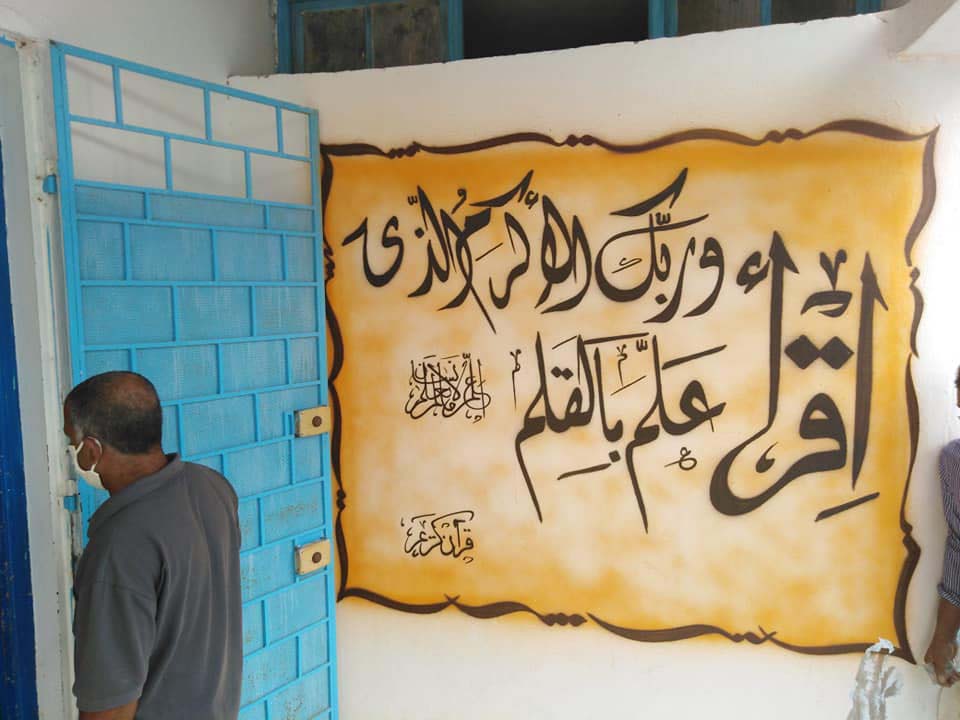 اِقرأ وربّك الأكرمُ الذّى
علّم بالقَلِم
علم الإنسان ما لم يعلم
قرآن كريم